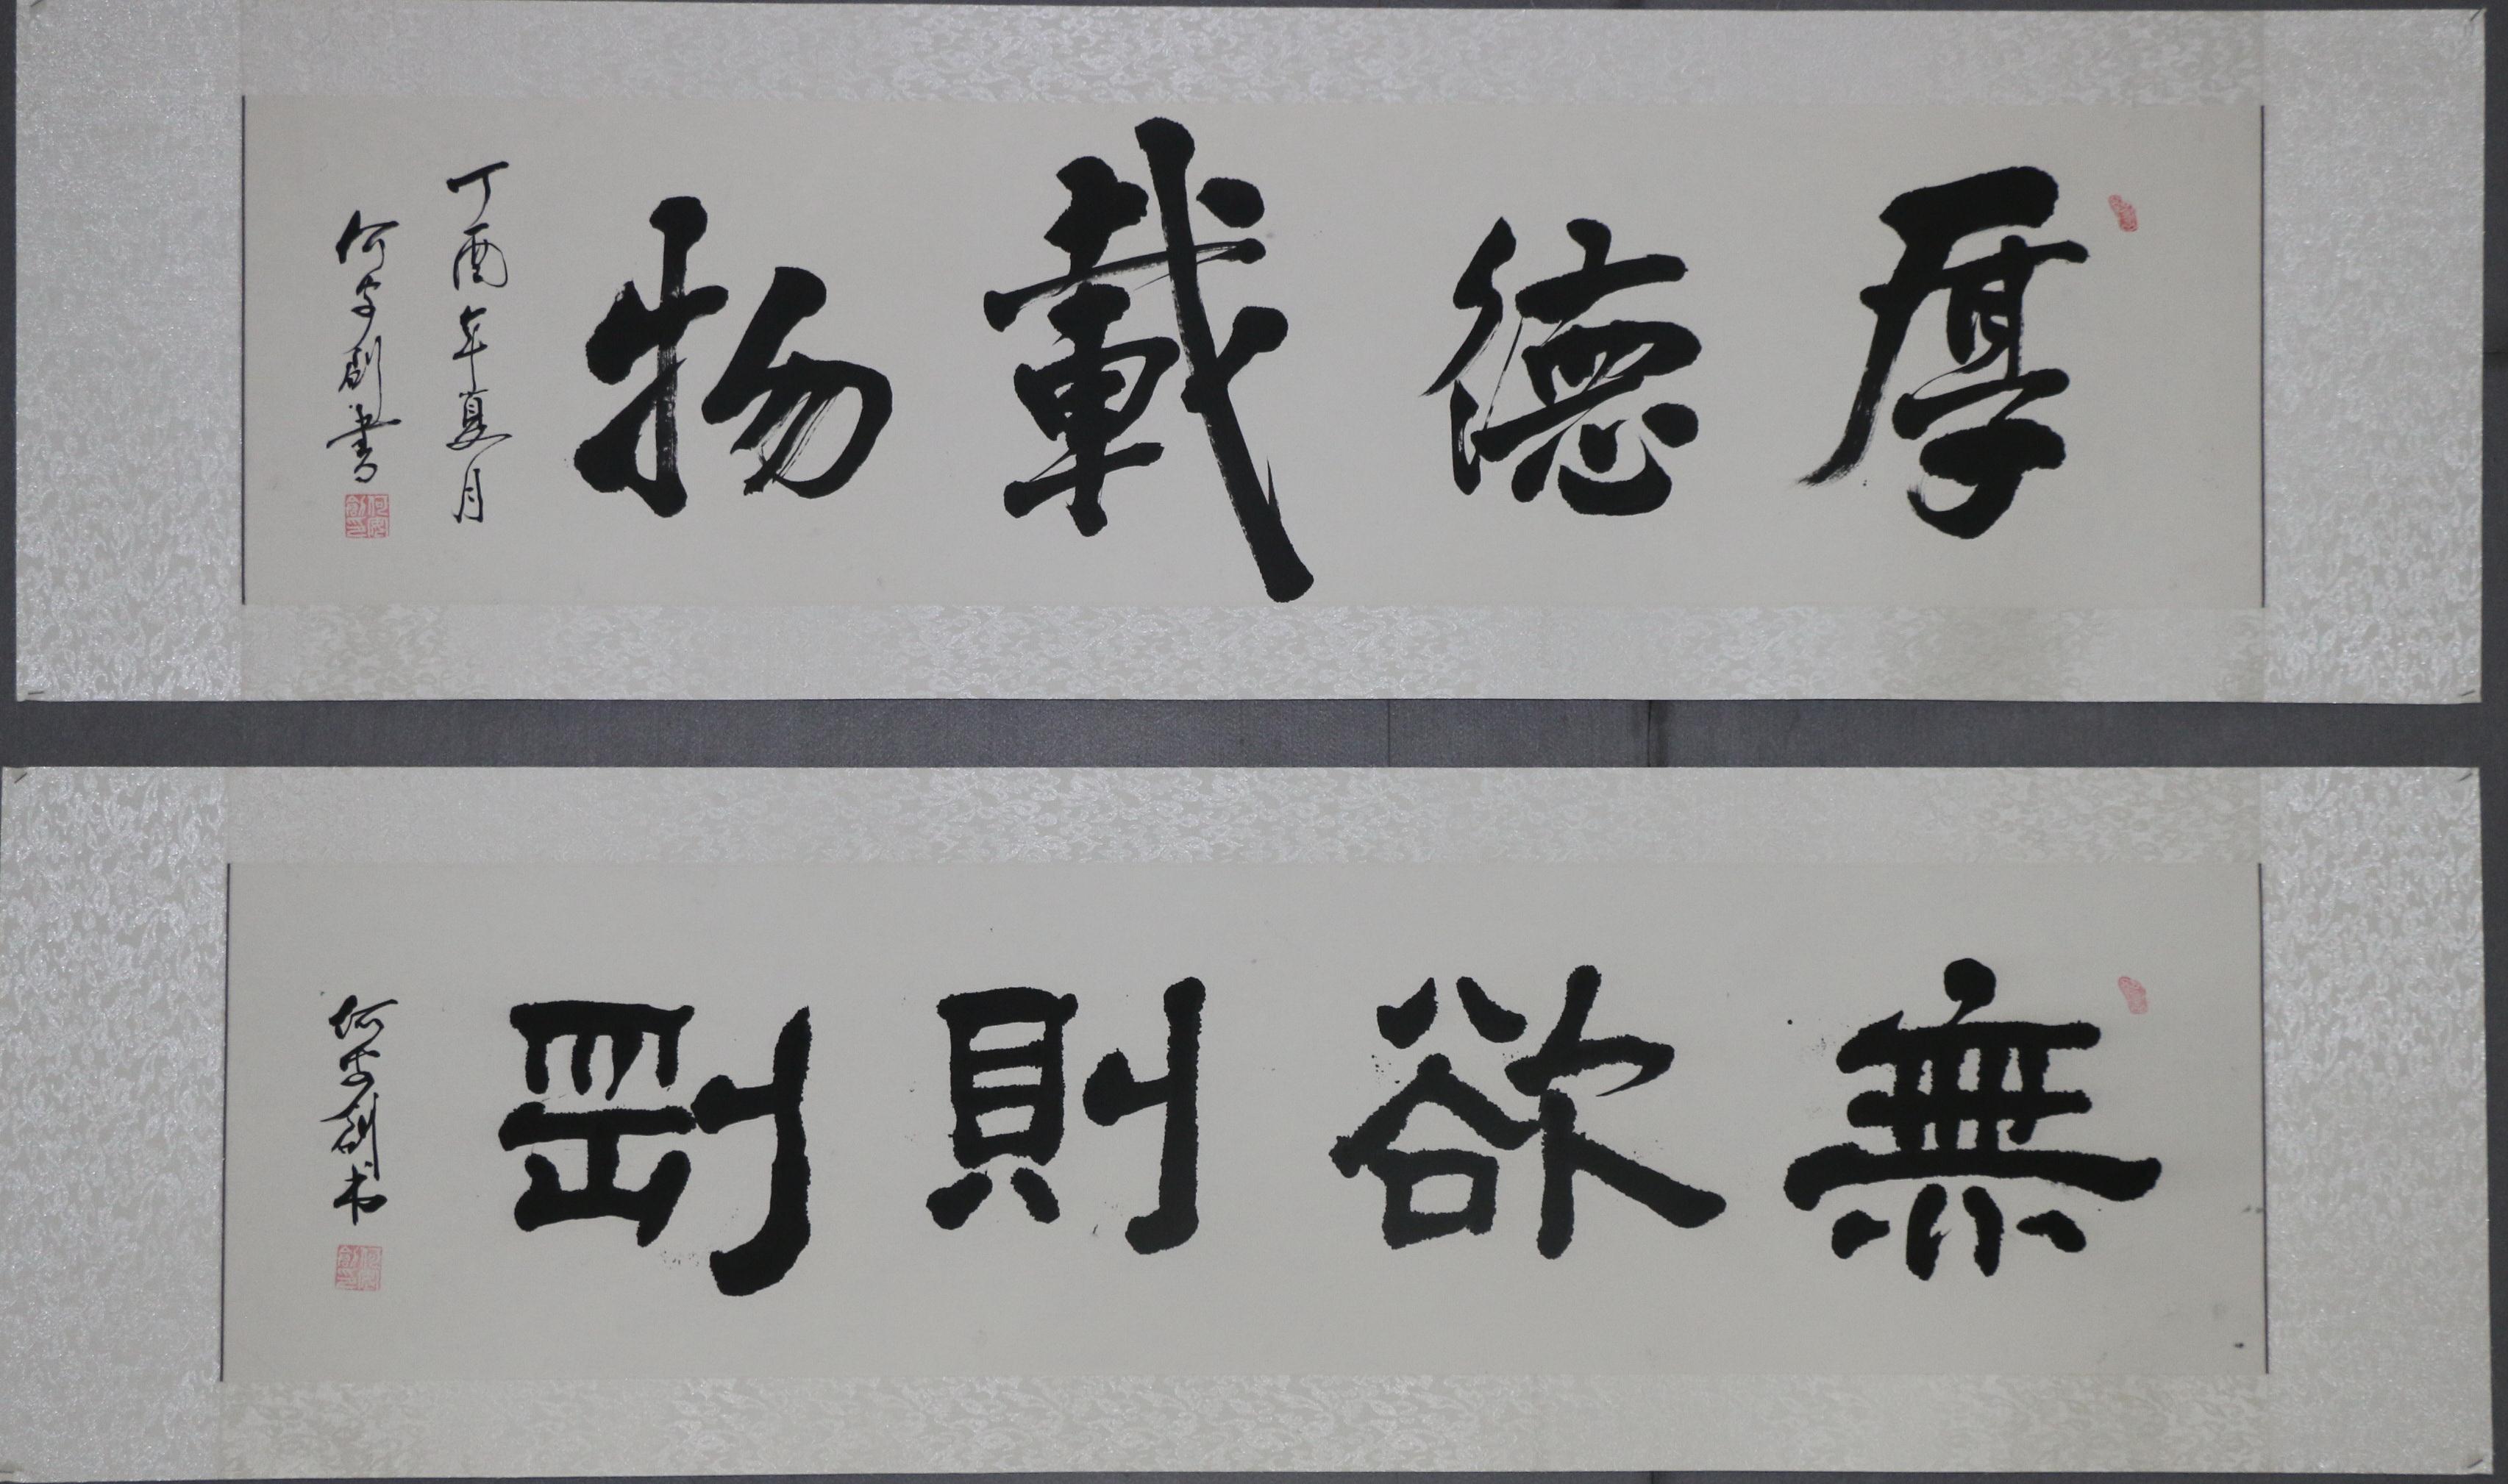 厚德載物
丁酉年夏月
何守創書
無欲則剛
何守創书